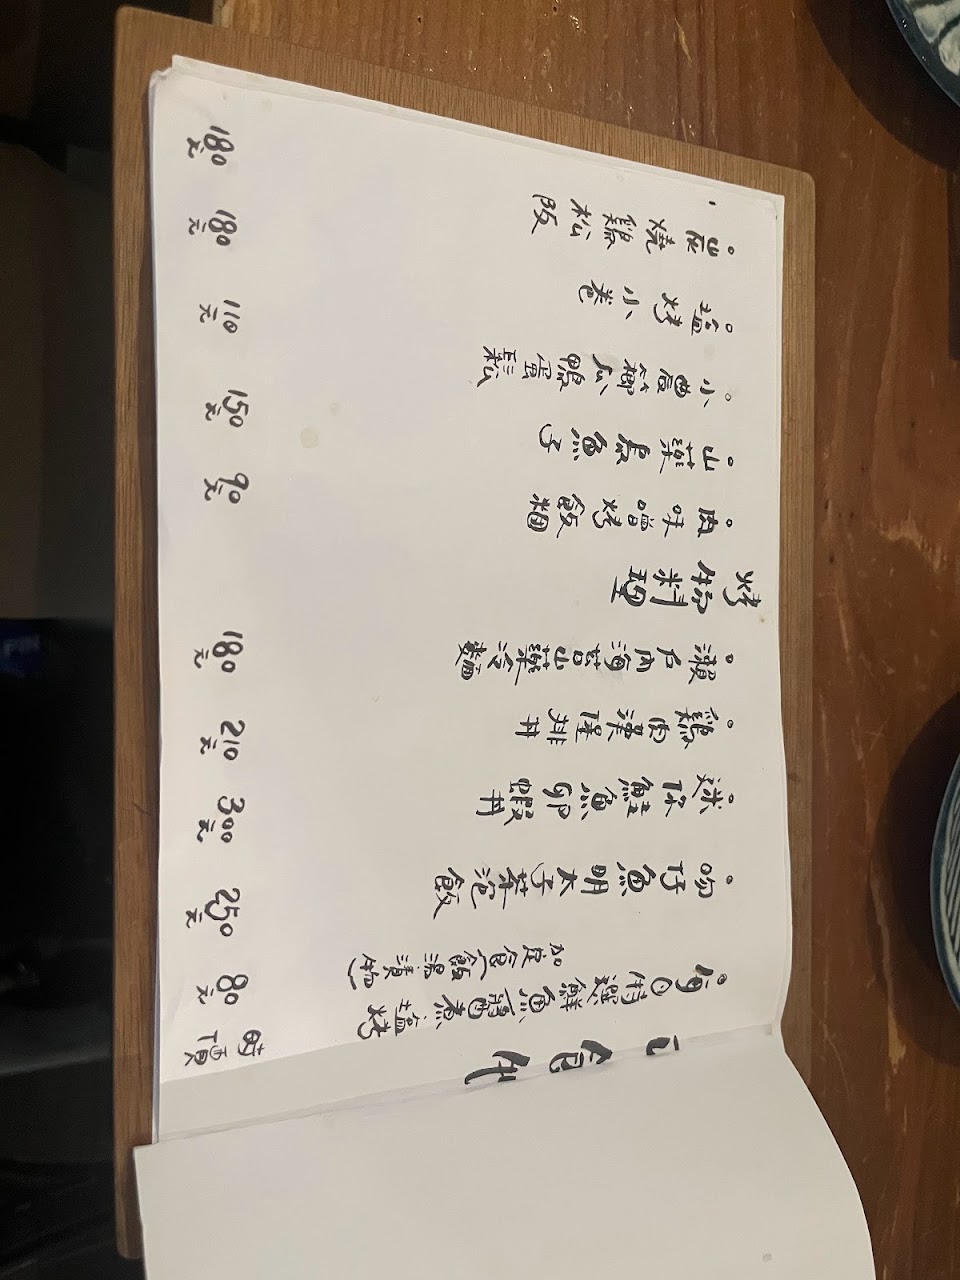 。每日特選鮮魚 煮 塩烤 時價
加定食(飯湯漬物) 80元
。吻仔魚明太子茶泡飯 250元
。迷你鮭魚卵蝦丼 300元
。雞肉漢堡排丼 210元
。瀨戶內海苔山藥冷麵 180元
烤物料理
。肉味噌烤飯糰 90元
。山藥烏魚子 150元
。小農櫛瓜鴨蛋鬆 110元
。塩烤小卷 180元
。炭燒雞松阪 180元